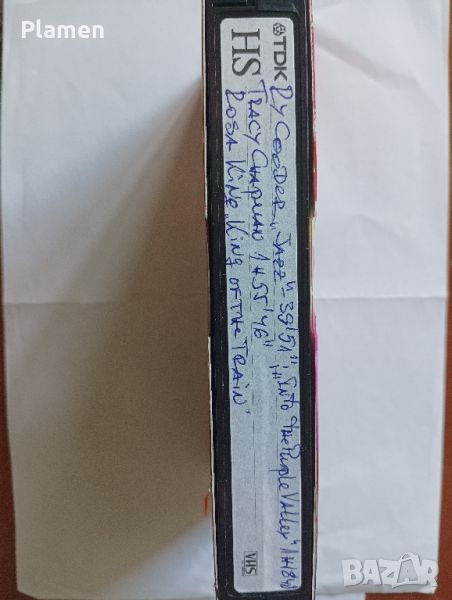 Plamen
TDK
HS
RY COODER „JAZZ"- 38'51"; „INTO THE PURPLE VALLEY"
TRACY CHAPMAN 1H 55'46"
ROSA KING „KING OF THE TRAIN"
VHS
BAZAR